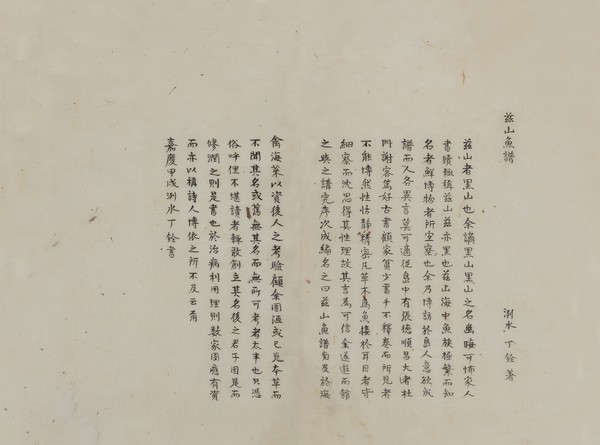 茲山魚譜 洌水 丁銓 著
茲山者黑山也余謫黑山黑山之名幽晦可怖家人
書牘輒稱茲山茲亦黑也茲山海中魚族極繁而知
名者鮮博物者所宜察也余乃博訪於島人意欲成
譜而人各異言莫可適從島中有張德順昌大者杜
門謝客篤好古書顧家貧少書手不釋卷而所見者
不能博然性恬靜精密凡草木鳥魚接於耳目者皆
細察而沈思得其性理故其言爲可信余遂邀而館
之與之講究序次成編名之曰茲山魚譜旁及於海
禽海菜以資後人之考驗顧余固陋或已見本草而
不聞其名或舊無其名而無所可考者太半也只憑
俗呼俚不堪讀者輒敢創立其名後之君子因是而
修潤之則是書也於治病利用理則數家固應有資
而亦以補詩人博依之所不及云爾
嘉慶甲戌洌水丁銓書